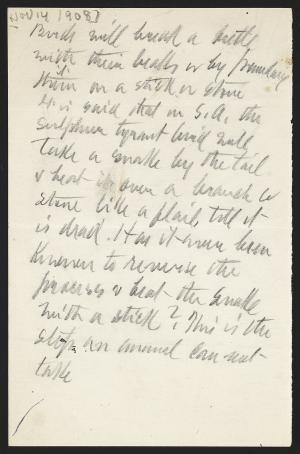 Nov 14 1908]
Birds will break a
with their beaks or by pounding
them on a stick or stone
It is said that in S.A. the
sulphur tyrant bird will
take a snake by the tail
& beat it over a branch or
stone like a flail, till it
is dead. Has it ever been
known to reverse the
process & beat the snake
with a stick? This is the
step an animal can not
take